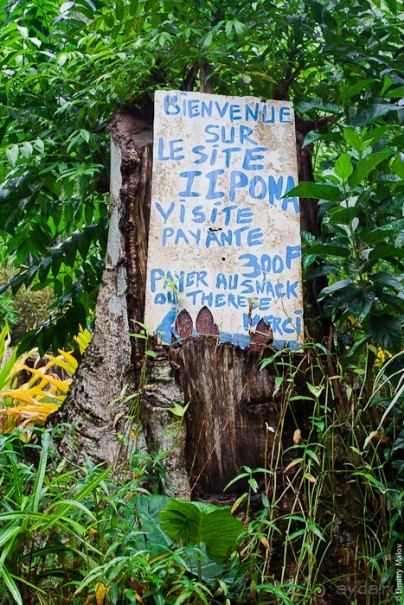 BIENVENUE
SUR
LE SITE
IIPONA
VISITE
PAYANTE
300F
PAYER AU SNACK
OU THERESE
MERCI
© Dmitry Malov